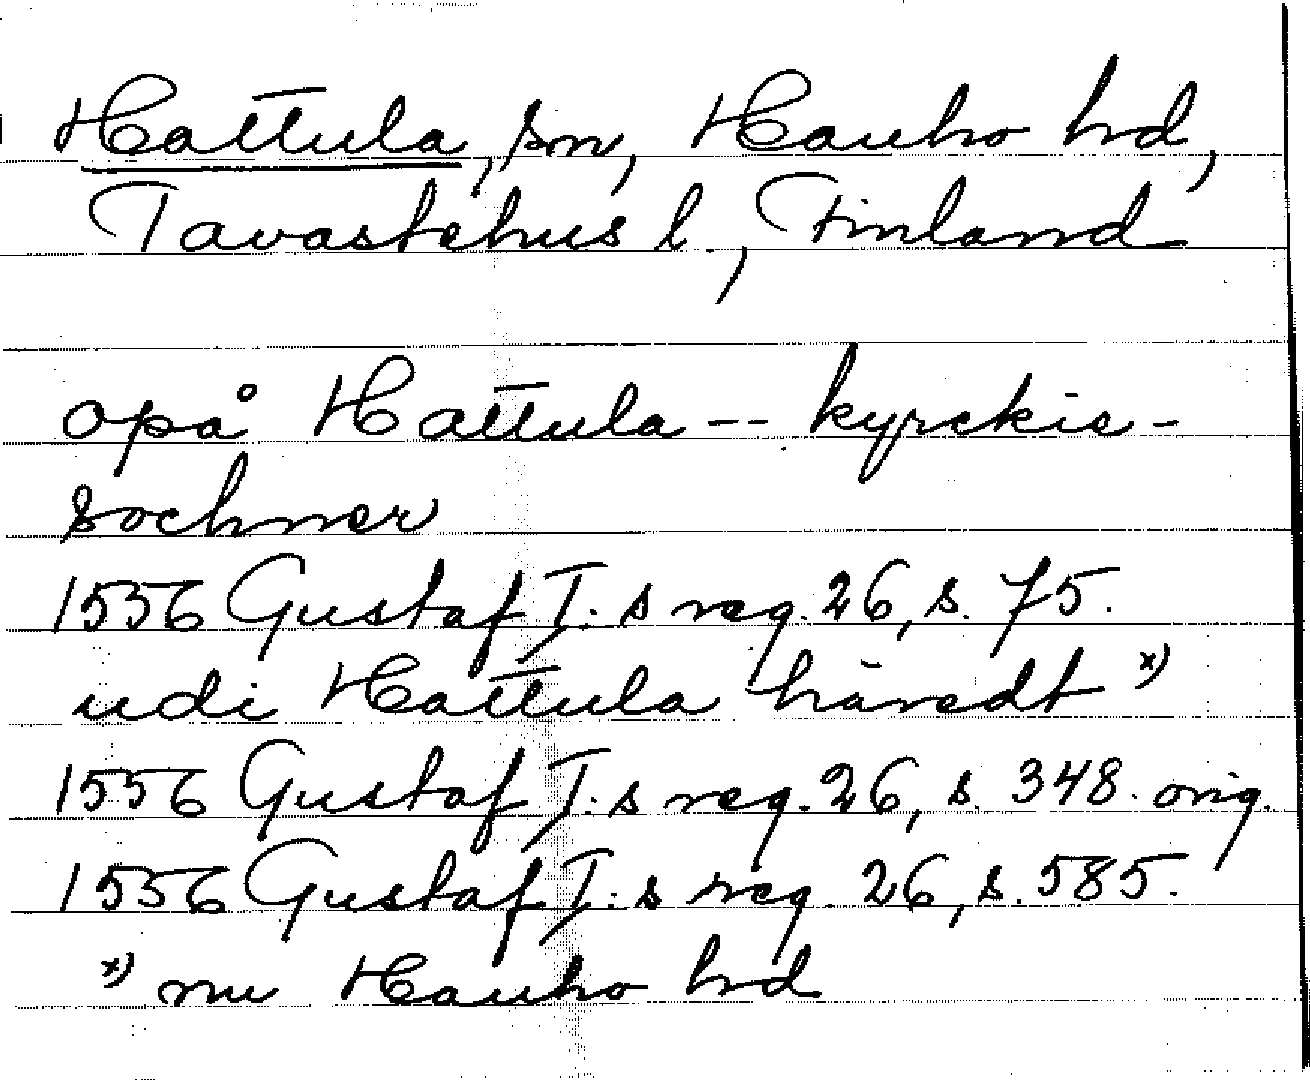 Hattula, sn, Hauho hd,
Tavastehus l., Finland
opå Hattula -- kyrckie-
sochner
1556 Gustaf I:s reg. 26, s. 75.
udi Hattula häredt x)
1556 Gustaf I:s reg. 26, s. 348. orig.
1556 Gustaf I:s reg. 26, s. 585.
x) nu Hauho hd